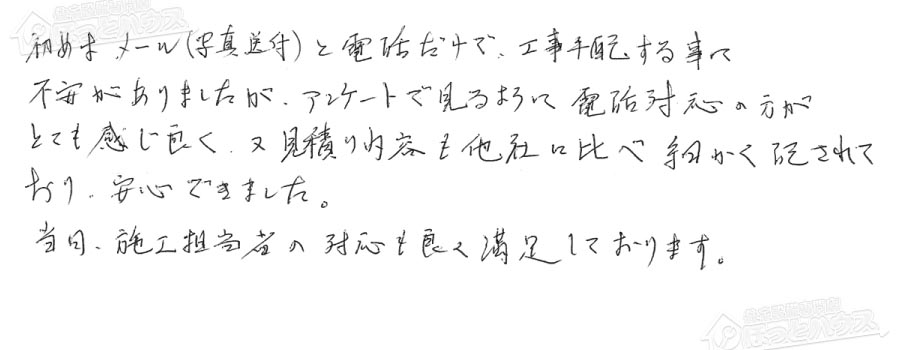 初めは メール(写真送付)と電話だけで、工事手配する事に
不安がありましたが、アンケートで見るように 電話対応の方が
とても感じ良く、又 見積り内容も他社に比べ 細かく記されて
おり、安心できました。
当日、施工担当者の対応も良く満足しております。
ほっとハウス
ほっとハウス